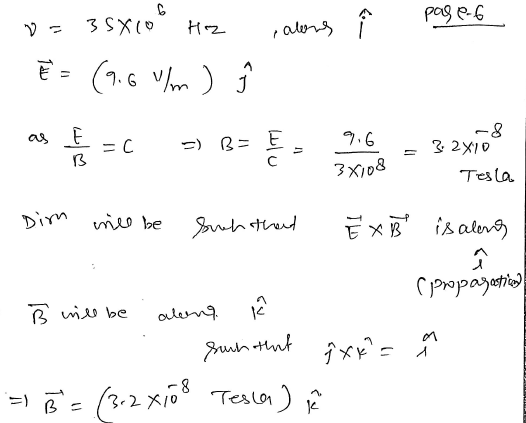 page-6
ν = 35X10⁶ Hz , along î
E⃗ = (9.6 V/m) ĵ
as E/B = C ⇒ B = E/C = 9.6/3×10⁸ = 3.2×10⁻⁸ Tesla
Dirn will be such that E⃗ × B⃗ is along î (propagation)
B⃗ will be along k̂
such that ĵ×k̂ = î
⇒ B⃗ = (3.2 ×10⁻⁸ Tesla) k̂